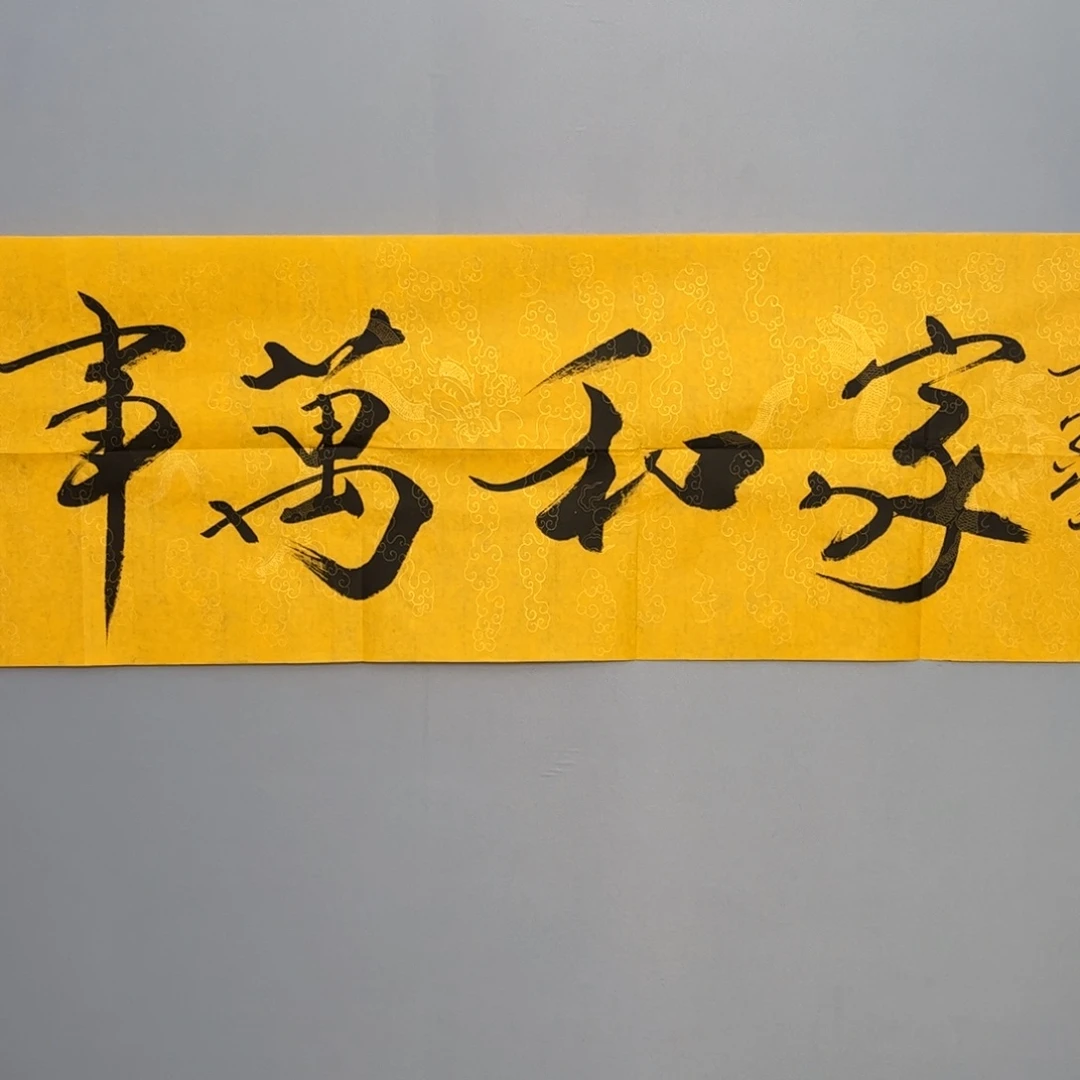 家和萬事